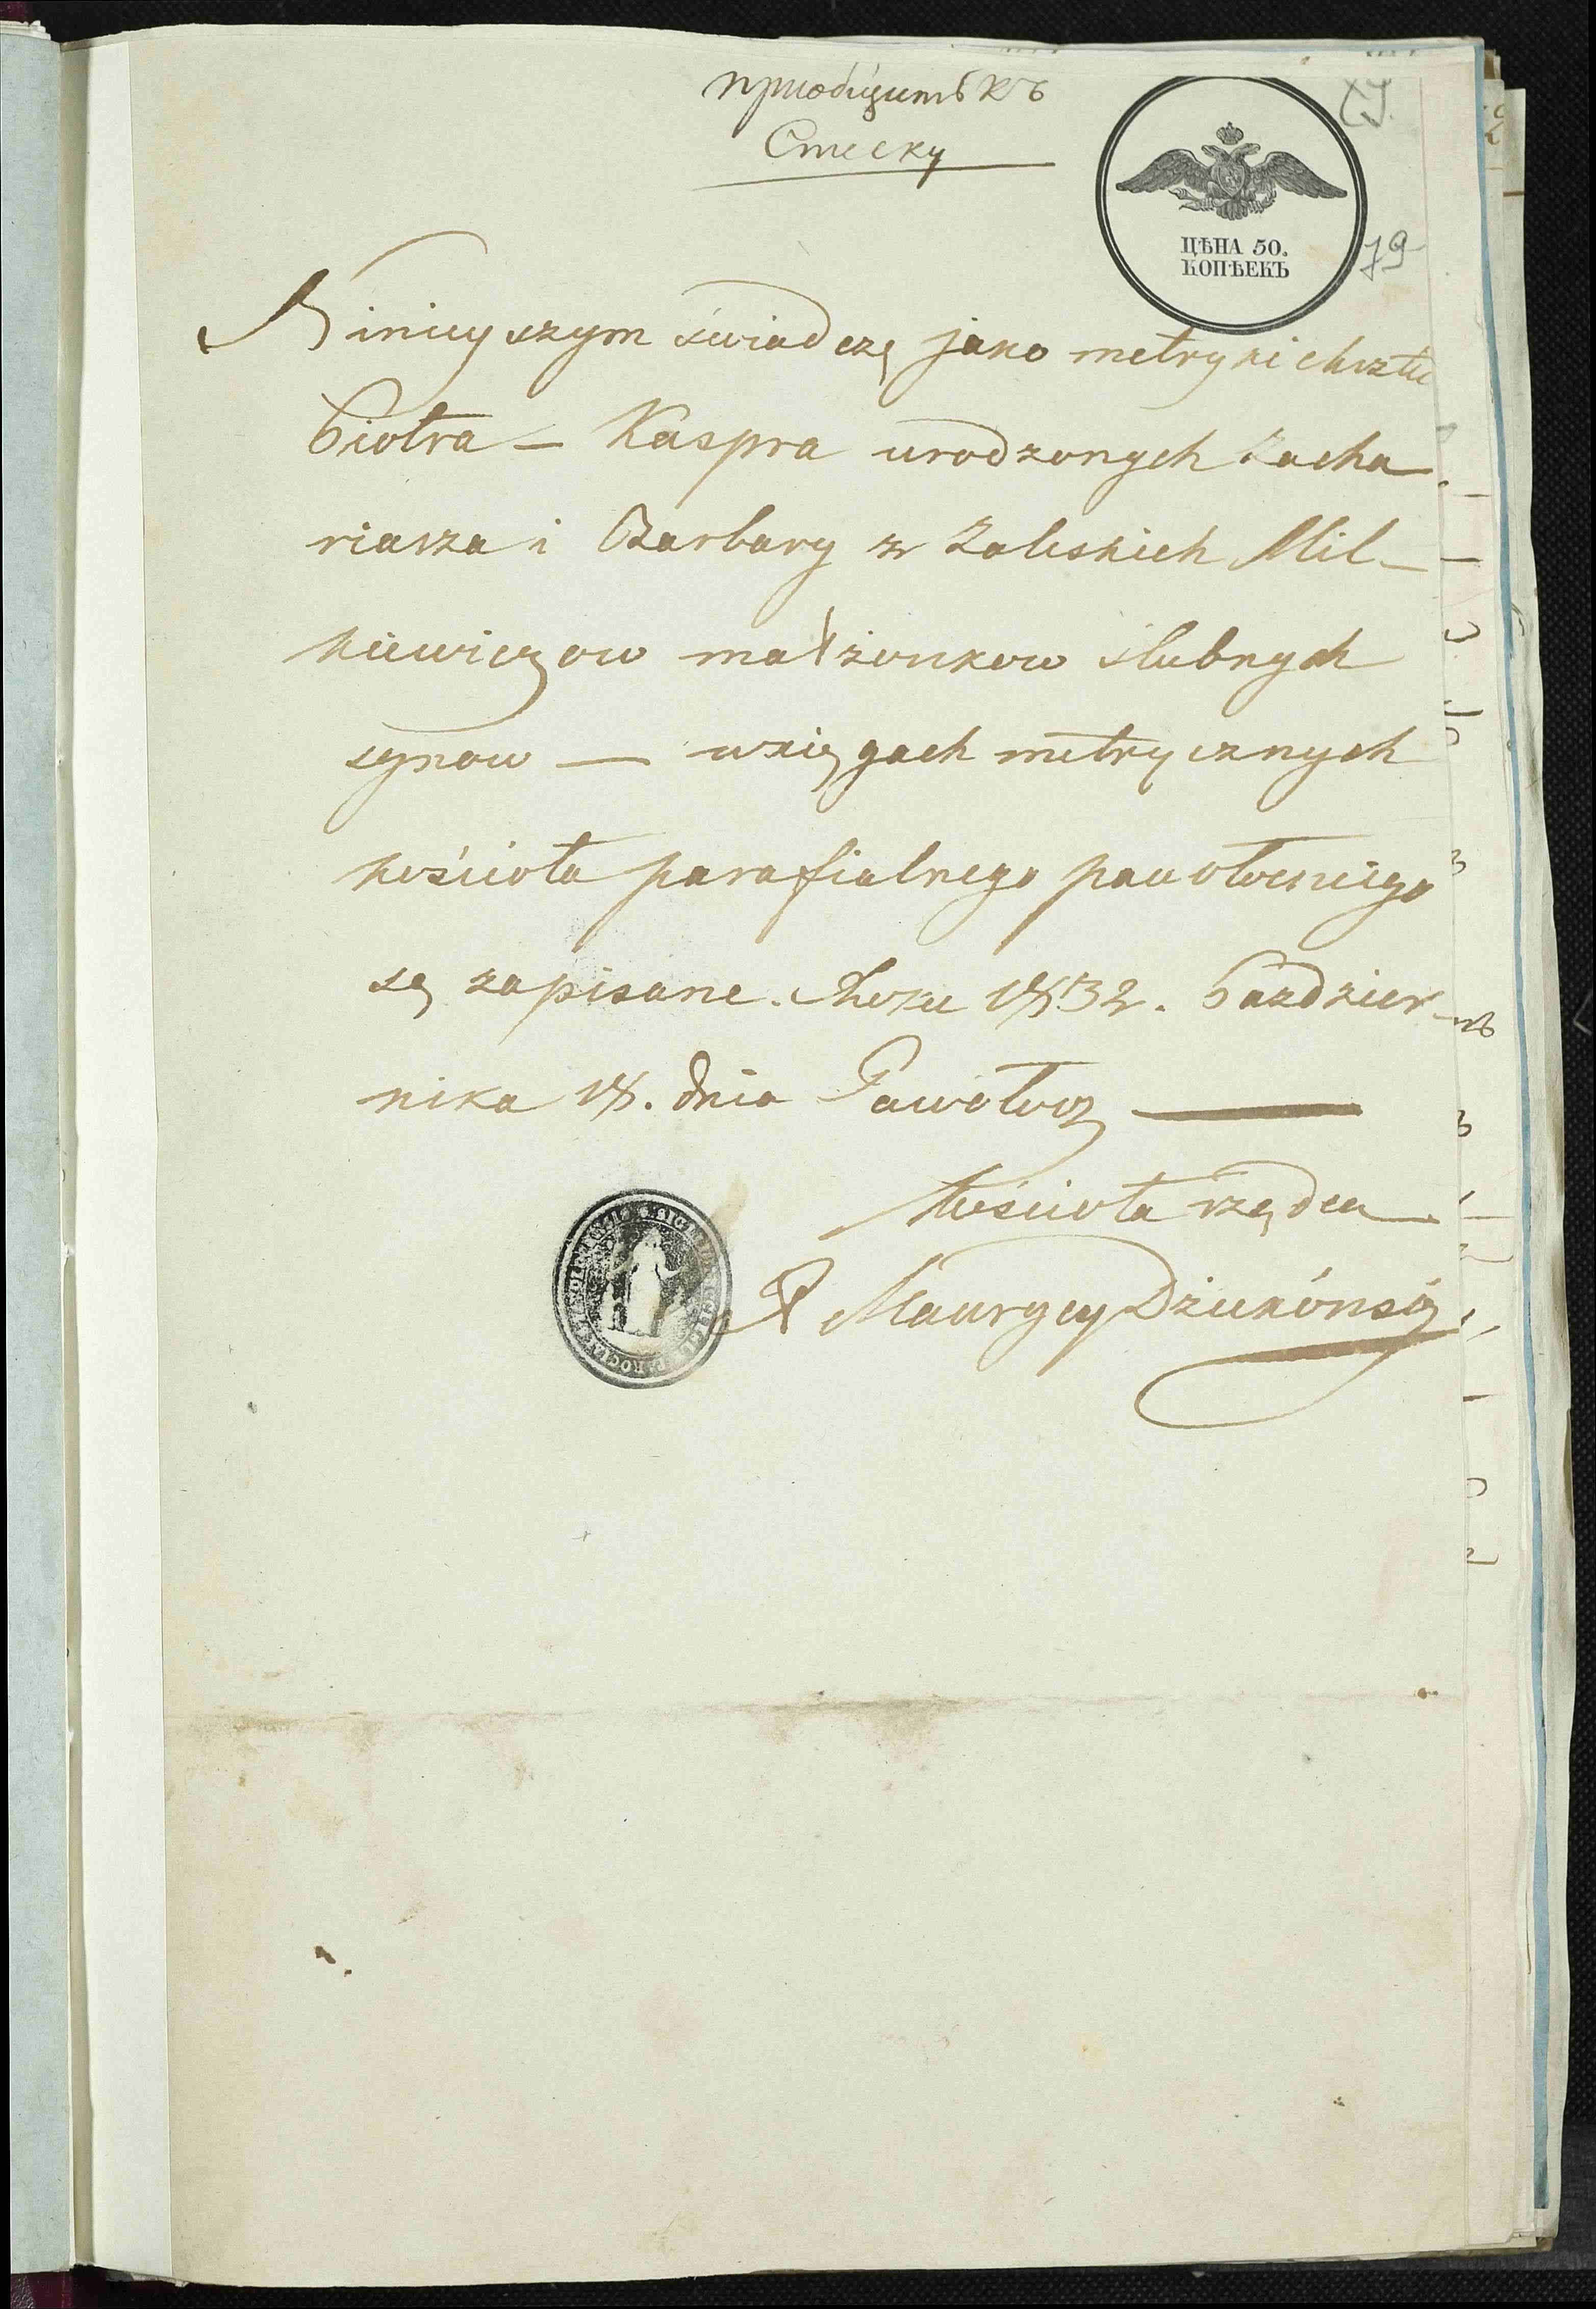 приобщить къ
Списку
79
ЦѢНА 50.
КОПѢЕКЪ
Niniejszym świadczę jako metryki chrztu
Piotra – Kaspra urodzonych Zacha
riasza i Barbary z Zaleskich Mil–
kiewiczow małżonkow ślubnych
synow — w xięgach metrycznych
kościoła parafialnego pawołockiego
są zapisane. Roku 1832. Pazdzier–
nika 18. dnia Pawołocz —
Kościoła rządca
X Maurycy